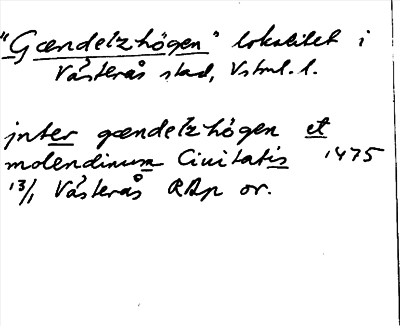 "Gændelzhögen" lokalitet i
Västerås stad, Vstml. l.
inter gændelzhögen et
molendinum Civitatis 1475
13/1 Västerås RAp or.